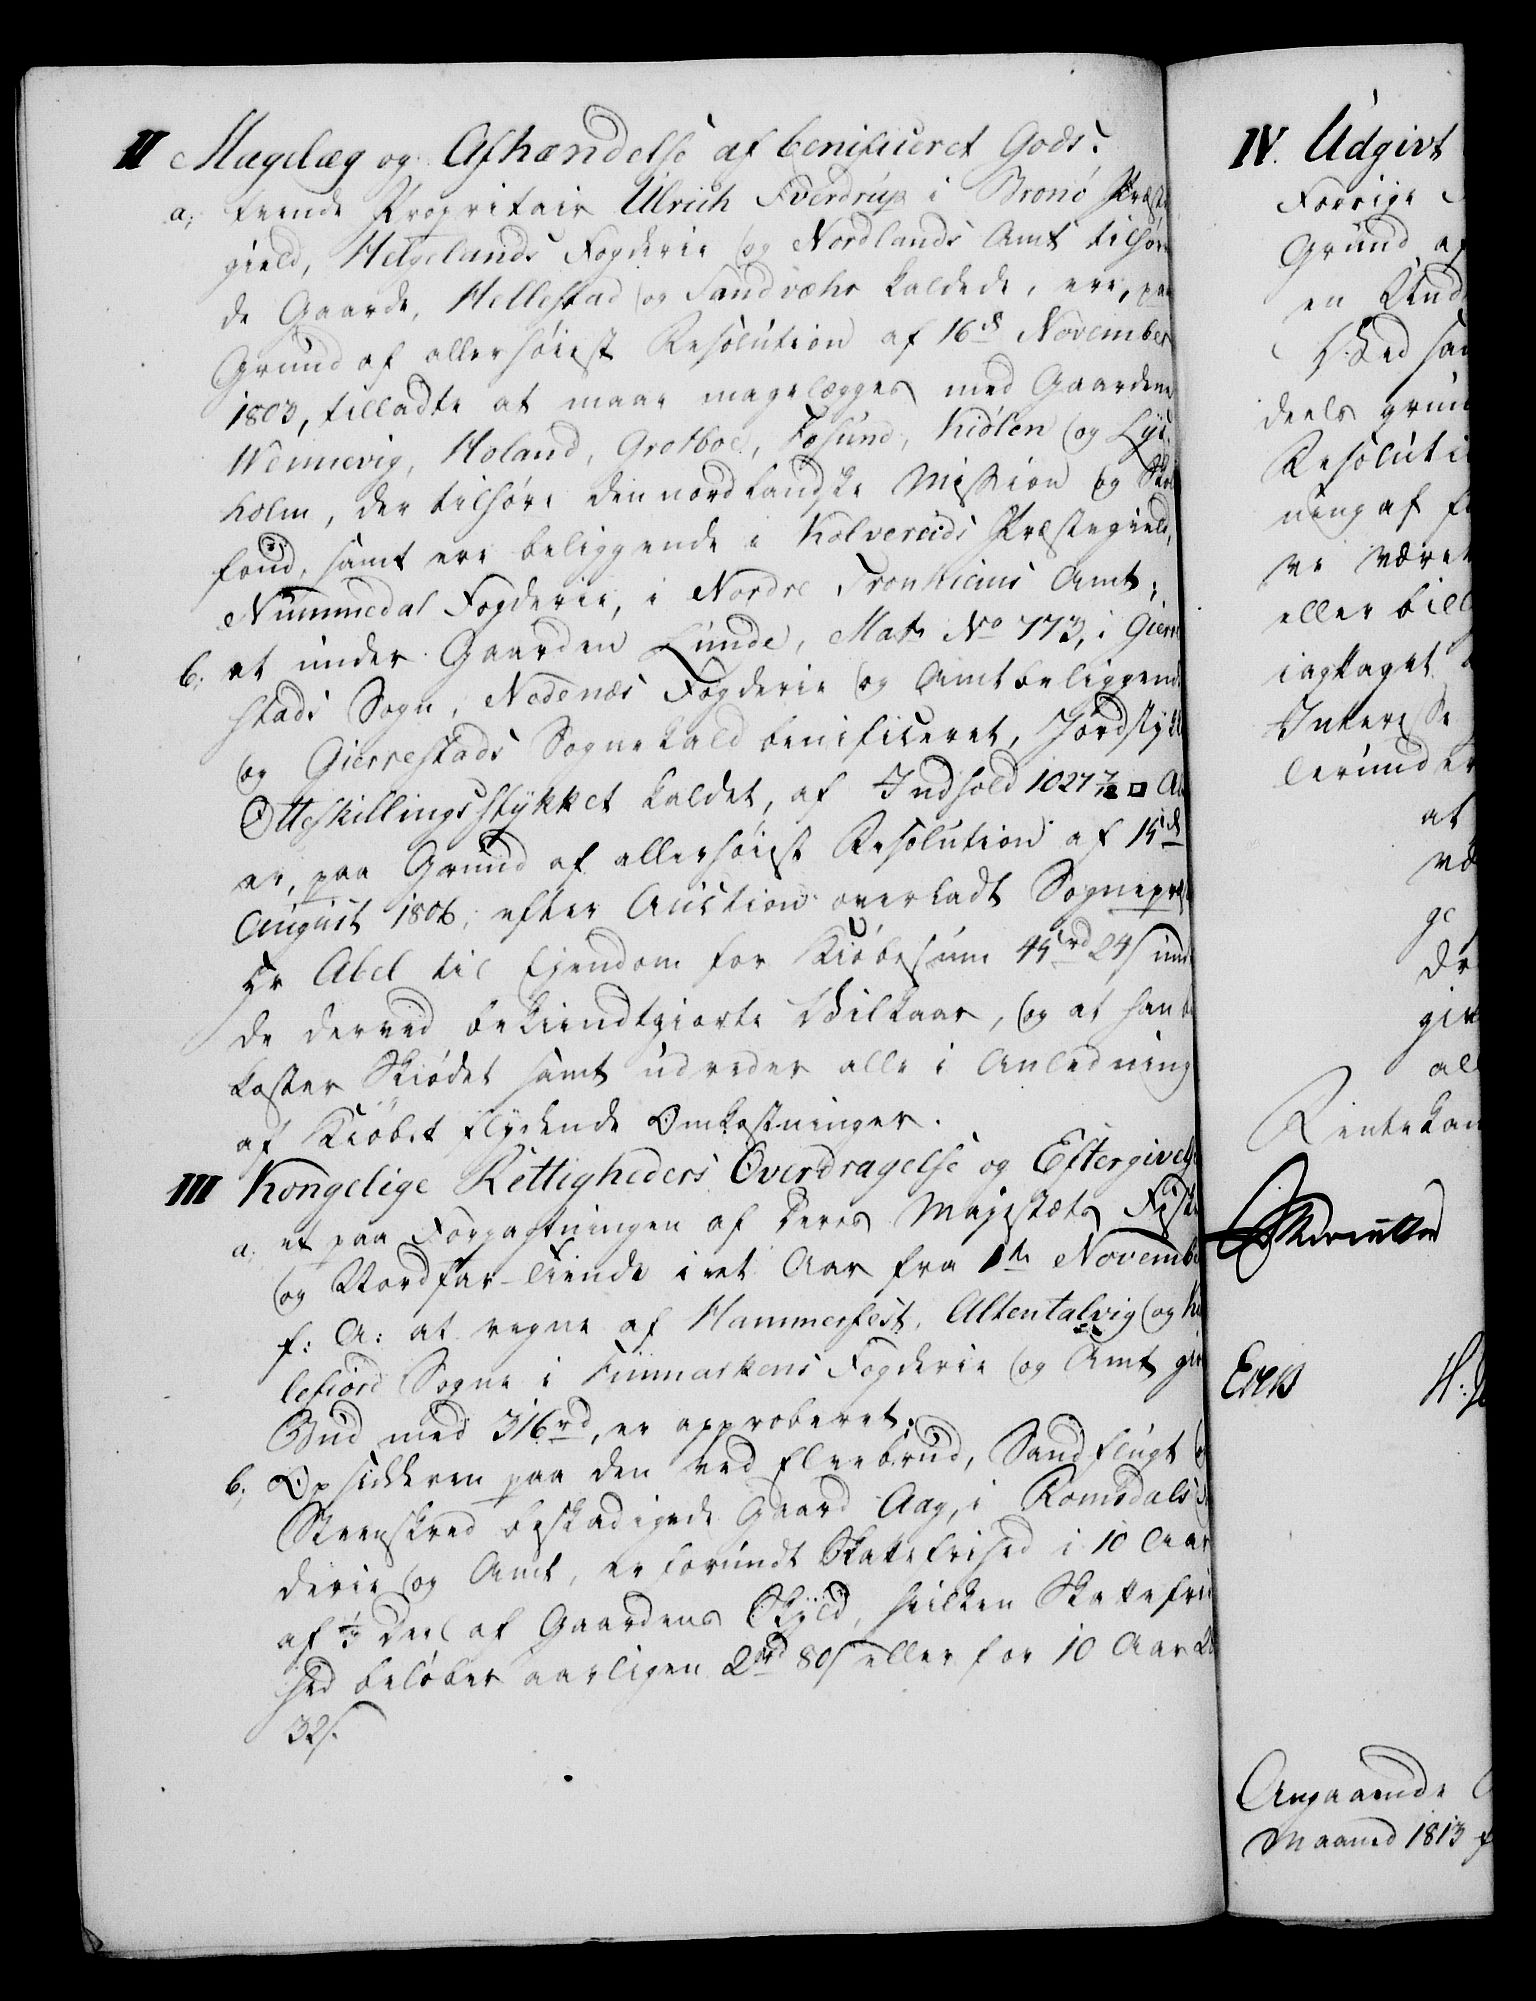 II Magelæg og Afhændelse af benificeret Gods.
a; tvende Propritair Ulrich Sverdrup i Brønø Præste
gield, Helgelands Fogderie og Nordlands Amt tilhøren
de Gaarde, Hellestad og Sandvæhr kaldede, ere, paa
Grund af allerhøiest Resolution af 16de November
1803, tilladte at maae magelægges med Gaardene
Wennevig, Holand, Grotboe, Fosund, Kiølen og Lye
holm, der tilhøre den nordlandske Mission og Skole
fond, samt ere beliggende i Kolvereids Præstegield,
Nummedal Fogderie, i Nordre Tronhiems Amt;
b; at under Gaarden Lunde, Matr No 773, i Gierre
stads Sogn, Nedenæs Fogderie og Amt beliggende
og Gierrestads Sognekald benificeret, Jordstykke
Otteskillingsstykket kaldet, af Indhold 1027 1/2 □ Al
er, paa Grund af allerhøiest Resolution af 15de
August 1806, efter Auction overladt Sognepræst
Hr Abel til Eiendom for Kiøbesum 45rd 24s und
de derved bekiendtgiorte Vilkaar, og at han be
koster Skiødet samt udreder alle i Anledning
af Kiøbet flydende Omkostninger.
III Kongelige Rettigheders Overdragelse og Eftergivelse
a. et paa Forpagtningen af Deres Majestæts Fiske
og Nordfar-Tiende i et Aar fra 1te November
f: A: at regne af Hammerfest, Altentalvig og K
lefiord Sogne i Finmarkens Fogderie og Amt giort
Bud med 316rd, er approberet.
b; Opsidderen paa den ved Elvebrud, Sandflugt og
Steenskred beskadigede Gaard Aag, i Romsdals Fog
derie og Amt, er forundt Skattefrihed i 10 Aar
af 1/3 Deel af Gaardens Skyld, hvilken Skattefri
hed beløber aarligen 2rd 80s eller for 10 Aar 2
32s.
IV. Udgivt
Forrige
Grund af
en Und
Ved sa
deels grun
Resoluti
ning af f
ve været
eller bill
iagttaget
Interesse
lerunder
at
væ
ge
dr
giv
all
Rentekam
Eves H:
Angaaende
Maaned 1813 f